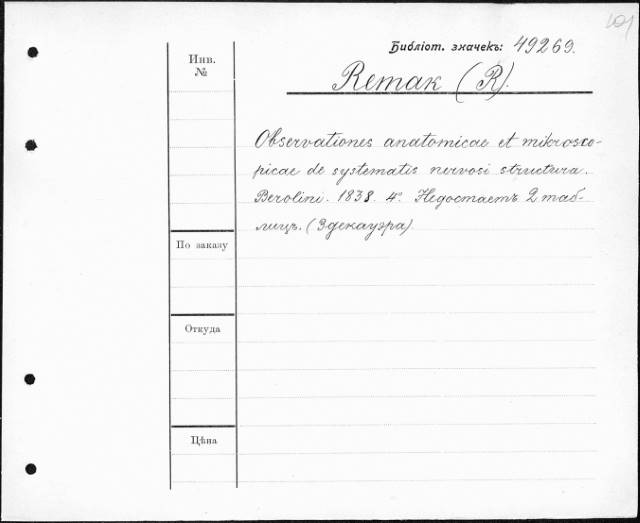 Библіот. значекъ: 49269.
Инв.
№
Remak (R).
Observationes anatomicae et mikrosco-
picae de systematis nervosi structura.
Berolini. 1838. 4º. Недостаетъ 2 таб-
лицъ. (Эдекауэра)
По заказу
Откуда
Цѣна